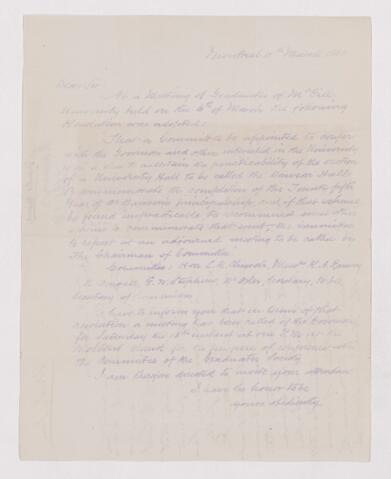 Montreal 11th March 1880
Dear Sir
At a Meeting of Graduates of McGill
University held on the 4th of March the following
Resolution was adopted:
That a Committee be appointed to confer
with the Governors and others interested in the University
with a view to ascertain the practicability of the erection
of a University Hall to be called the Dawson Hall
to commemorate the completion of the Twenty fifth
Year of Dr Dawson's principalship and if that scheme
be found impracticable to recommend some other
scheme to commemorate that event, the Committee
to report at an adjourned meeting to be called by
the Chairman of Committee
Committee: Hon
Secretary
I have to inform you that in terms of that
resolution a meeting has been called of the Governors
for Saturday the instant at
Molson's Bank for the purpose of conference with
the Committee of the Graduates Society
I am therefore directed to invite your attendance
I have the honor to be
yours obediently